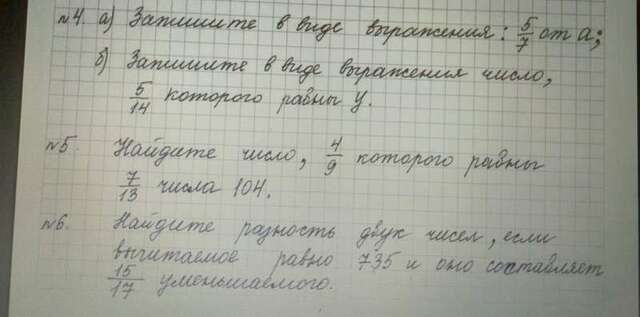 №4. а) Запишите в виде выражения: 5/7 от а;
б) Запишите в виде выражения число,
5/14 которого равны у.
№5. Найдите число, 4/9 которого равны
7/13 числа 104.
№6. Найдите разность двух чисел, если
вычитаемое равно 735 и оно составляет
15/17 уменьшаемого.